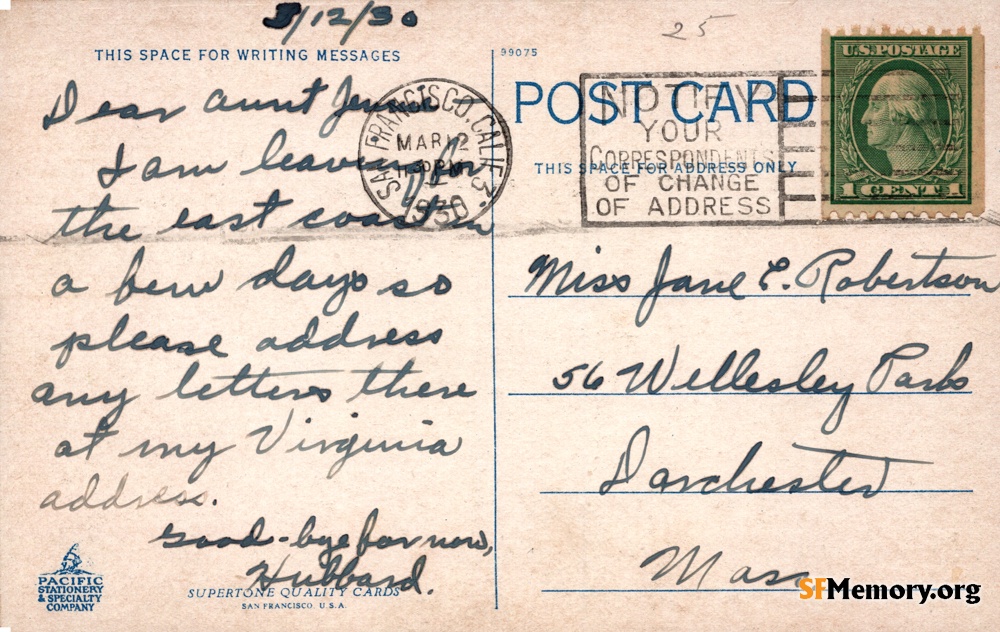 3/12/30
25
THIS SPACE FOR WRITING MESSAGES
99075
POST CARD
THIS SPACE FOR ADDRESS ONLY
U.S. POSTAGE
1 CENT 1
SAN FRANCISCO, CALIF. 3.
MAR 12
30 PM
1930
NOTIFY
YOUR
CORRESPONDENTS
OF CHANGE
OF ADDRESS
Dear Aunt
I am leaving for
the east coast in
a few days so
please address
any letters there
at my Virginia
address.
Good-bye for now,
Hubbard.
Miss Jane E. Robertson
56 Wellesley Park
Dorchester
Mass
PACIFIC
STATIONERY
& SPECIALTY
COMPANY
SUPERTONE QUALITY CARDS
SAN FRANCISCO. U.S.A.
SFMemory.org